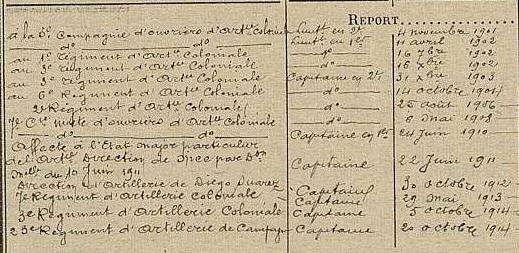 REPORT
à la 5e Compagnie d'ouvriers d'Artie Coloniale Lieutt en 2d 4 novembre 1901
do do Lieutt en 1er 11 avril 1902
au 1er régiment d'Artie Coloniale do 16 7bre 1902
au 3e régiment d'Artie Coloniale do 16 Xbre 1902
au 5e régiment d'Artie Coloniale Capitaine en 2d 31 Xbre 1903
au 6e Régiment d'Artie Coloniale do 14 octobre 1904
2e Régiment d'Artie Coloniale do 25 août 1906
7e Cie mixte d'ouvriers d'Artie Coloniale do 6 mai 1908
do do Capitaine en 1er 24 juin 1910
Affecté à l'Etat major particulier
de l'Artie Direction de Nice par Don
Melle du 10 juin 1911 Capitaine 22 Juin 1911
Direction d'Artillerie de Diégo Suarez Capitaine 30 octobre 1912
7e Régiment d'Artillerie Coloniale Capitaine 29 mai 1913
3e Régiment d'Artillerie Coloniale Capitaine 5 octobre 1914
23e Régiment d'Artillerie de Campagne Capitaine 20 octobre 1914